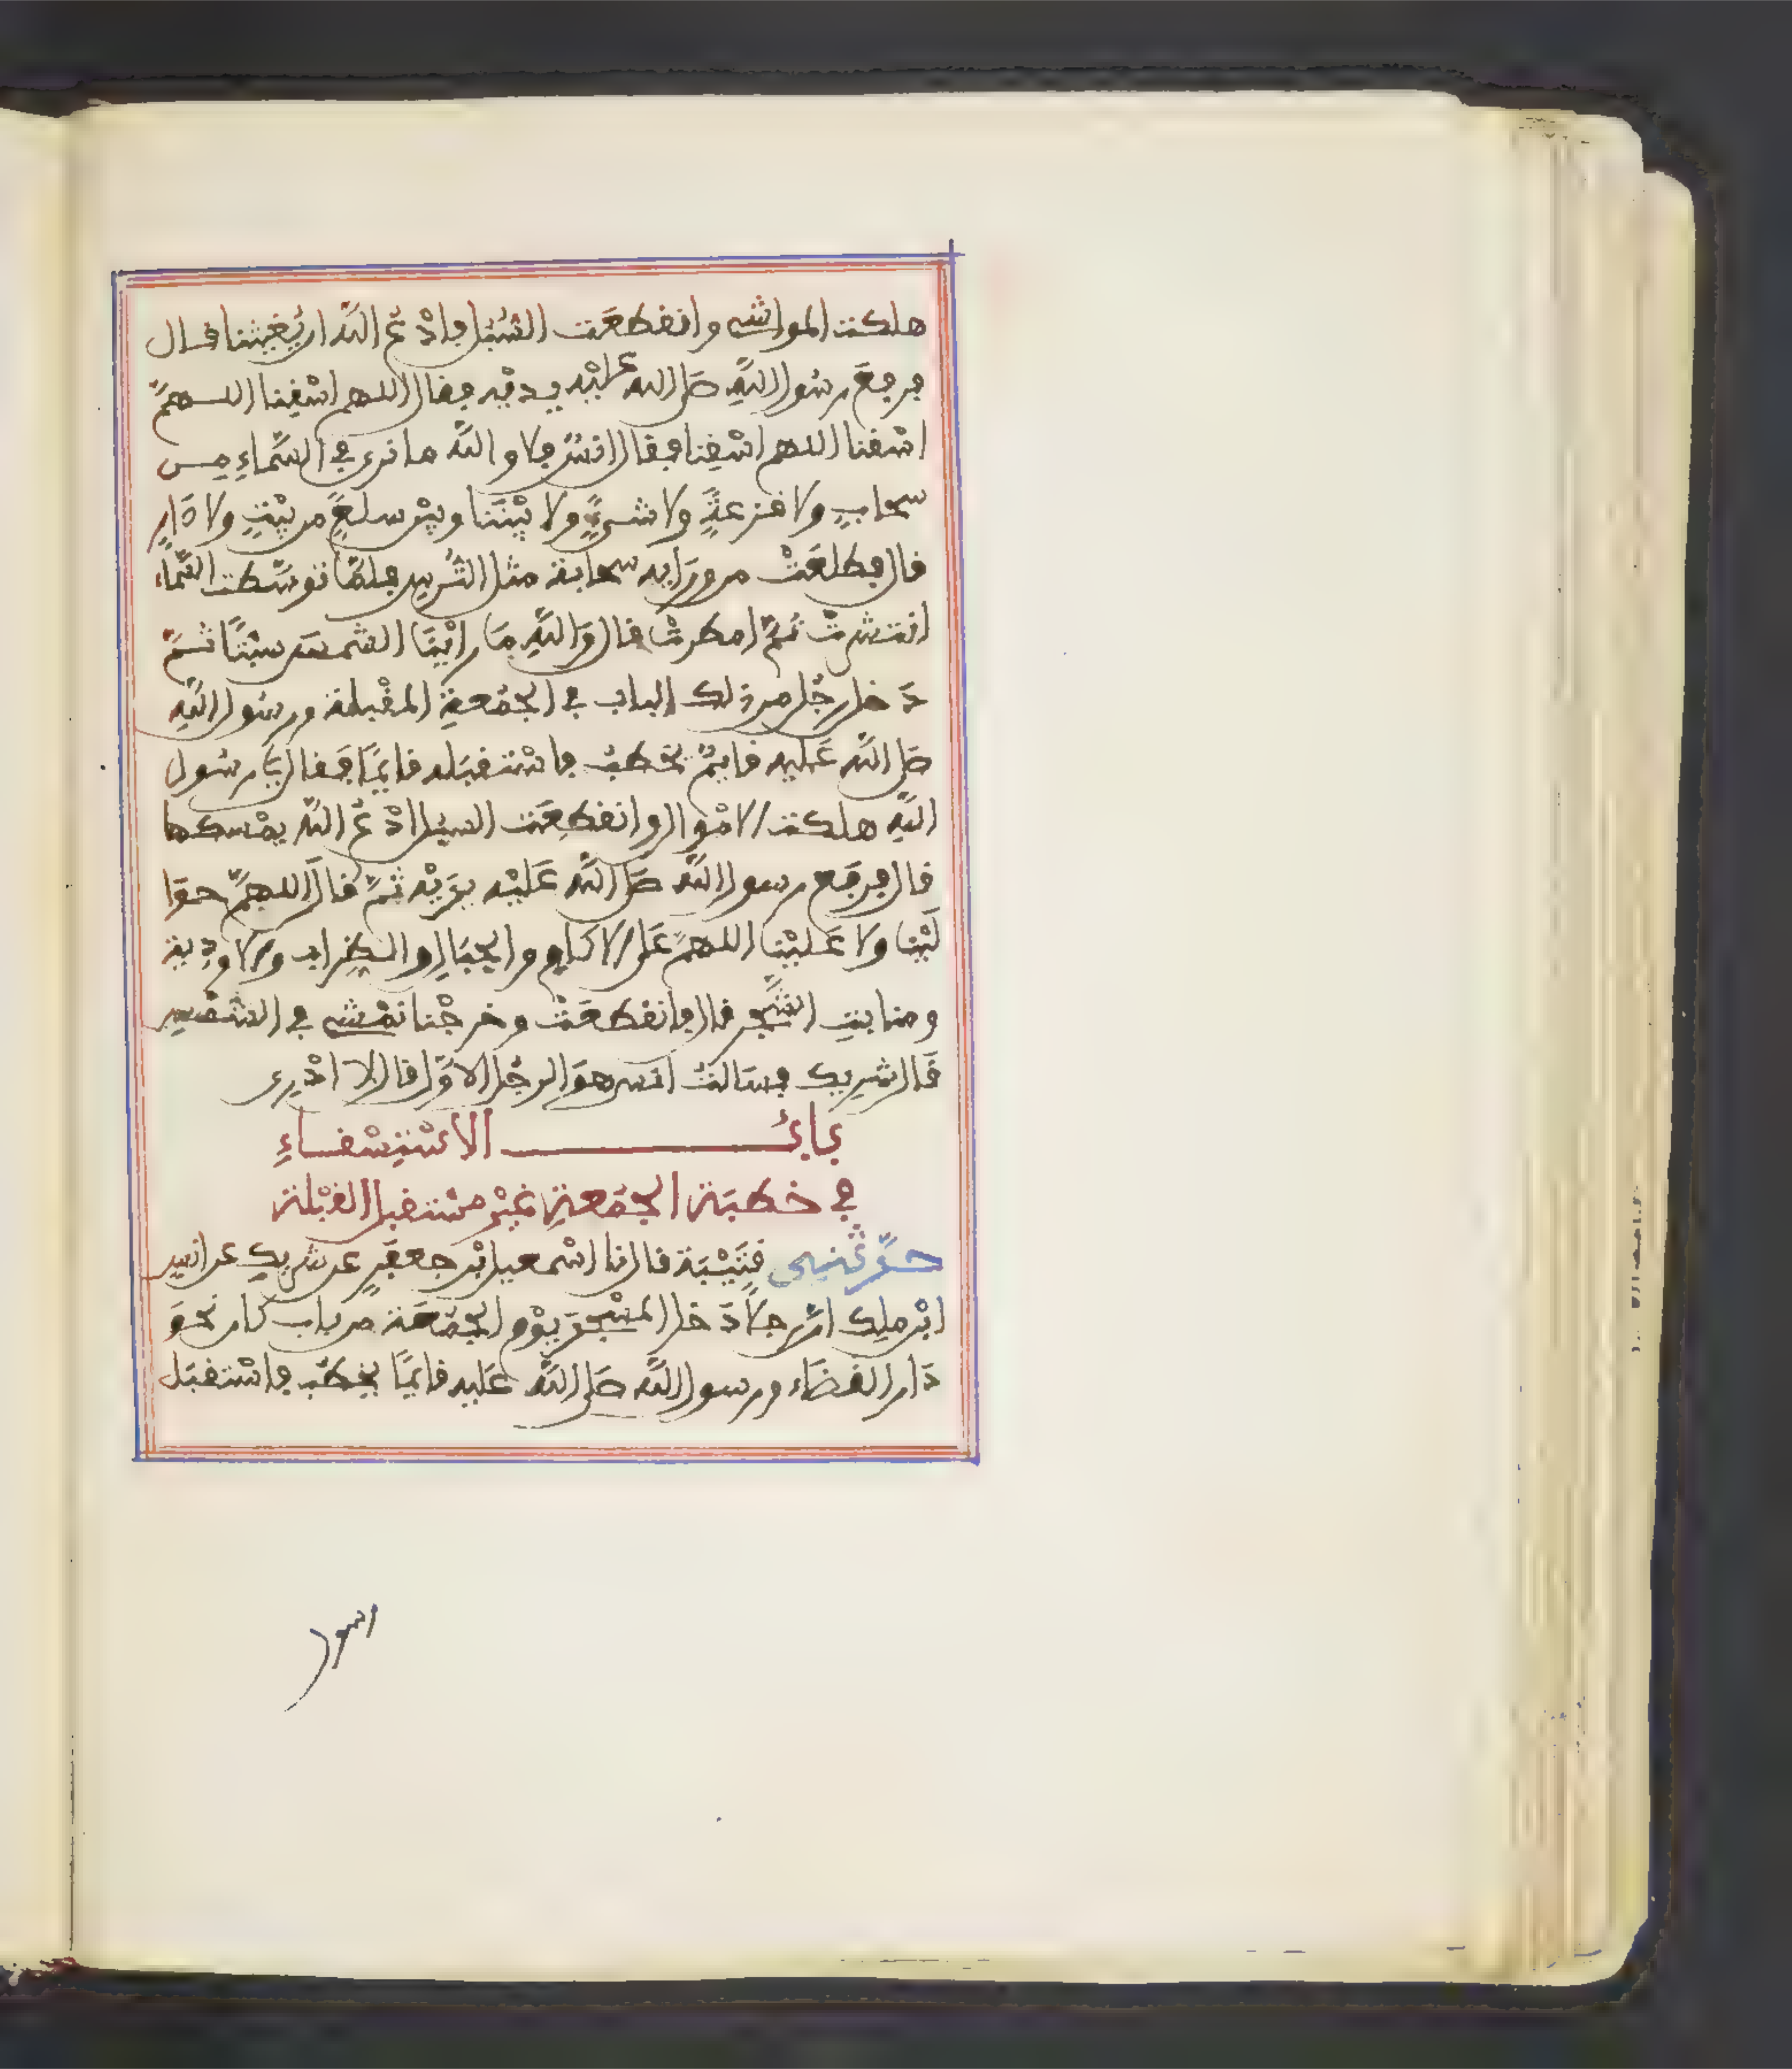 هلكت المواشي وانقطعت السُّبُل فادْعُ اللّه ان يُغيثنا قال
فرفعَ رسُول اللّهِ صلى الله عليْه يديْه فقال اللهم اسْقِنا اللهمَّ
اسْقنا اللهم اسْقِنا فقال انسٌ فلا واللّه ما نرى في السَّماءِ من
سحابٍ ولا قزعةٍ ولا شيءٍ ولا بيْننا وبيْن سلعٍ من بيْتٍ ولا دَارٍ
قال فطلعَتْ من ورَايه سحابة مثل التُّرس فلمَّا توسَّطت السَّماء
انتشرتْ ثمَّ امطرتْ قال وَاللّهِ مَا رايْنَا الشمسَ سبْتًا ثمَّ
دَخل رجُل من ذلك الباب في الجمُعةِ المقْبلة ورسُول اللّهِ
صلى اللّه عَليه قايمٌ يخطبُ فاسْتقبَله قايمًا فقال يَا رسُول
اللّهِ هلكت الامْوال وانقطعَت السبُل ادْعُ اللّه يمْسكها
قال فرفَع رسول اللّه صلى اللّه عَليْه يدَيْه ثمَّ قال اللهمَّ حوَا
لَيْنا ولا عَليْنا اللهمَّ عَلى الاكام والجبَال والظراب والاودِية
ومنابتِ الشَّجر قال فانقطعَتْ وخرجْنا نمْشي في الشمْسِ
قَال شرِيك فسَالتُ انسً هوَ الرجُل الاوَّل قال لا ادْرِى
بابُ الاسْتِسْقاءِ
في خطبَة الجمُعةِ غيْر مسْتقبل القبْلة
حدَّثنى قتَيْبَة قال نا اسْمعيل ابْن جعفَرٍ عن شريكٍ عن انسِ
ابْن ملِك انَّ رجلاً دَخل المسْجدَ يوْم الجمُعَة من باب كان نحوَ
دَار القضَاء ورسول اللّه صلى اللّه عَليه قايمًا يخطُب فاسْتقبَل
رسول